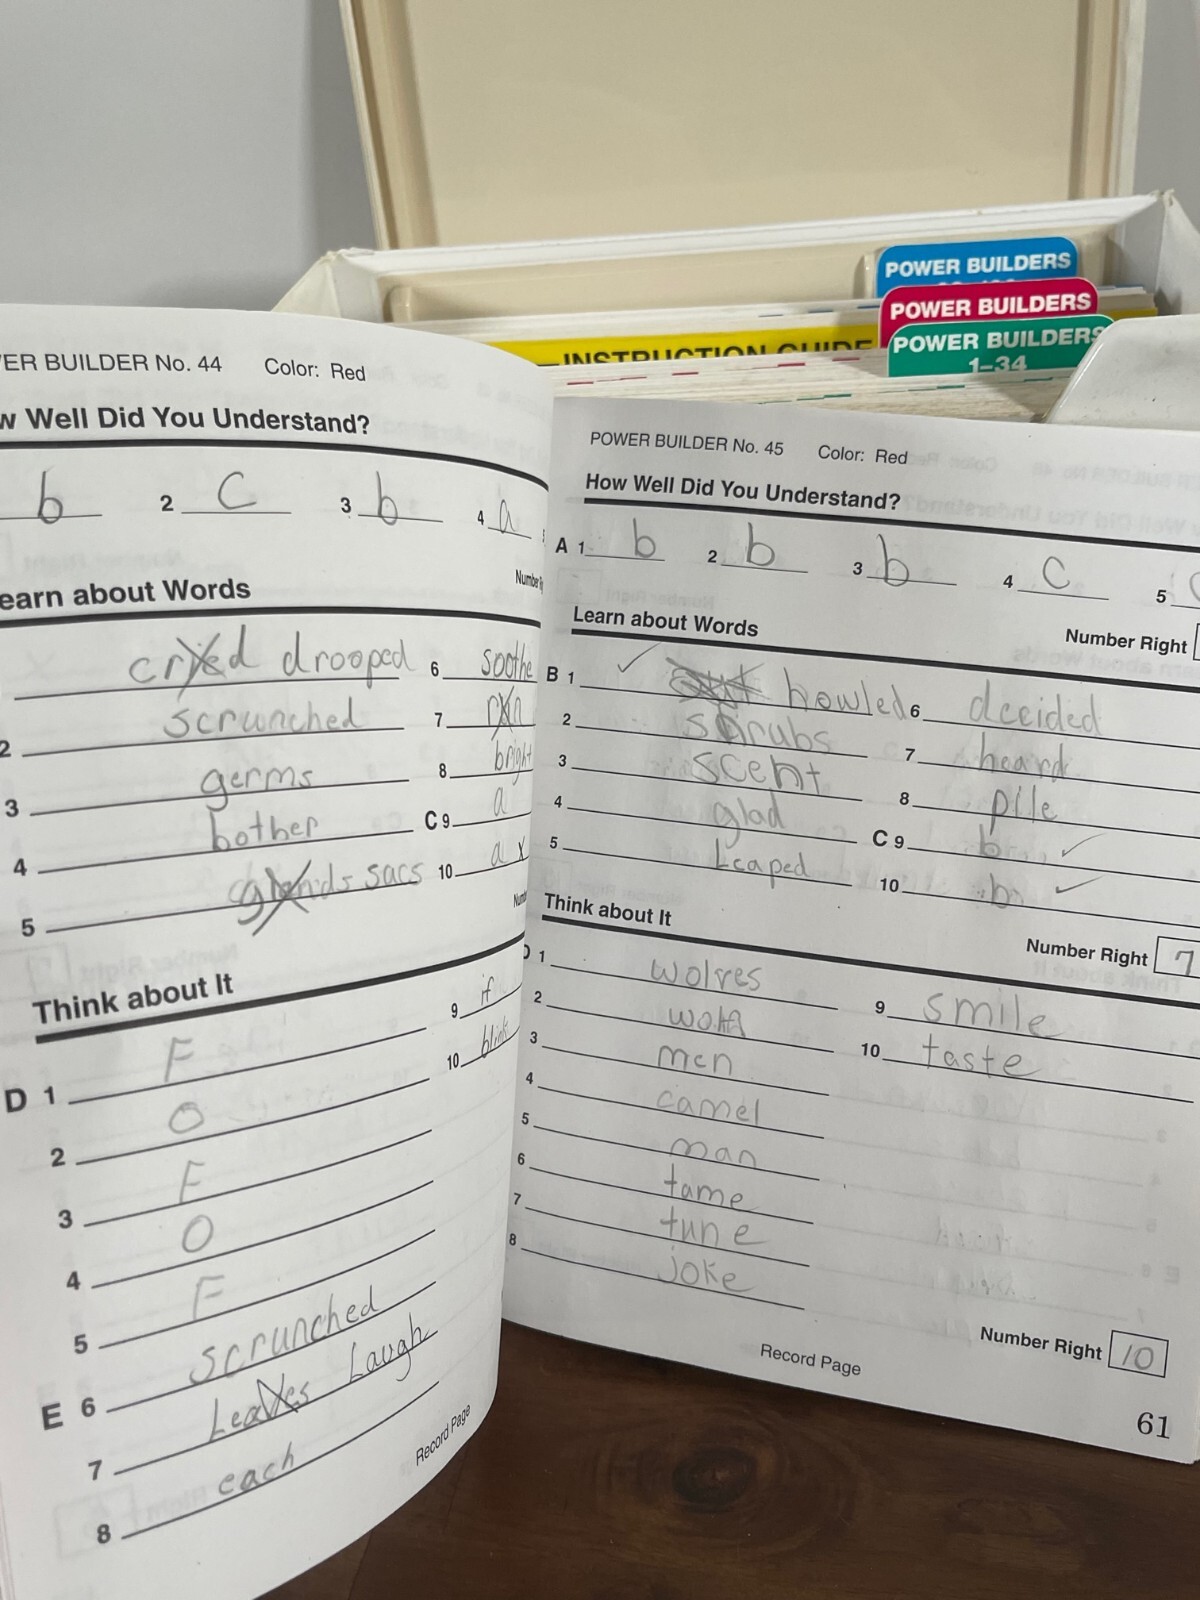 POWER BUILDERS
POWER BUILDERS
POWER BUILDERS
1–34
INSTRUCTION GUIDE
ER BUILDER No. 44 Color: Red
w Well Did You Understand?
b 2 c 3 b 4 a
Number
earn about Words
cried drooped 6 soothe
2 scrunched 7 run
3 germs 8 bright
4 bother C 9 a
5 glands sacs 10 a x
Think about It
D 1 F 9 if
2 O 10 blink
3 F
4 O
5 F
E 6 scrunched
7 Leaves Laugh
8 each
Record Page
POWER BUILDER No. 45 Color: Red
How Well Did You Understand?
A 1 b 2 b 3 b 4 c 5
Number Right
Learn about Words
B 1 ✓ howled 6 decided
2 shrubs 7 heard
3 scent 8 pile
4 glad C 9 b ✓
5 Leaped 10 b ✓
Number Right 7
Think about It
D 1 wolves 9 smile
2 10 taste
3 men
4 camel
5 man
6 tame
7 tune
8 joke
Number Right 10
Record Page
61